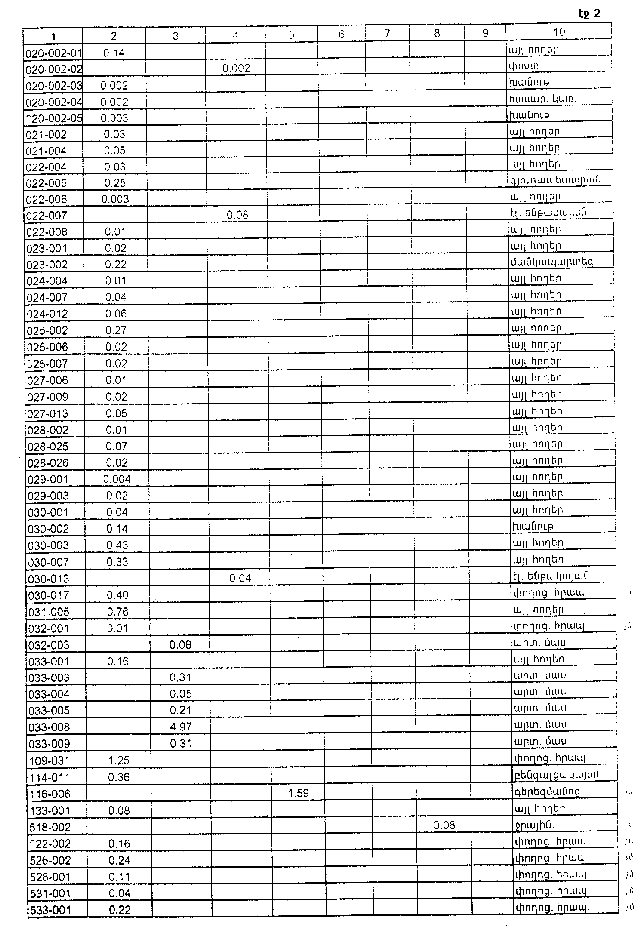 էջ 2
1 2 3 4 5 6 7 8 9 10
020-002-01 0.14 այլ հողեր
020-002-02 0.002 փոստ
020-002-03 0.002 խանութ
020-002-04 0.002
020-002-05 0.003 խանութ
021-002 0.03 այլ հողեր
021-004 0.05 այլ հողեր
022-004 0.03 այլ հողեր
022-005 0.25
022-006 0.003 այլ հողեր
022-007 0.06
022-008 0.01 այլ հողեր
023-001 0.02 այլ հողեր
023-002 0.22 մանկապարտեզ
024-004 0.01 այլ հողեր
024-007 0.04 այլ հողեր
024-012 0.06 այլ հողեր
025-002 0.27 այլ հողեր
026-006 0.02 այլ հողեր
026-007 0.02 այլ հողեր
027-006 0.01 այլ հողեր
027-009 0.02 այլ հողեր
027-013 0.05 այլ հողեր
028-002 0.01 այլ հողեր
028-025 0.07 այլ հողեր
028-026 0.02 այլ հողեր
029-001 0.004 այլ հողեր
029-003 0.02 այլ հողեր
030-001 0.04 այլ հողեր
030-002 0.14 խանութ
030-003 0.43 այլ հողեր
030-007 0.33 այլ հողեր
030-013 0.04
030-017 0.40 փողոց. հրապ.
031-005 0.76 այլ հողեր
032-001 0.01 փողոց. հրապ
032-003 0.08 արտ. մաս
033-001 0.16 այլ հողեր
033-003 0.31 արտ. մաս
033-004 0.05 արտ. մաս
033-005 0.21 արտ. մաս
033-008 4.97 արտ. մաս
033-009 0.31 արտ. մաս
109-031 1.25 փողոց. հրապ
114-011 0.36
116-006 1.59 գերեզմանոց
133-001 0.08 այլ հողեր
518-002 0.08 ջրային.
522-002 0.16 փողոց. հրապ.
526-002 0.24 փողոց. հրապ
528-001 0.11 փողոց. հրապ
531-001 0.04 փողոց. հրապ
533-001 0.22 փողոց. հրապ.